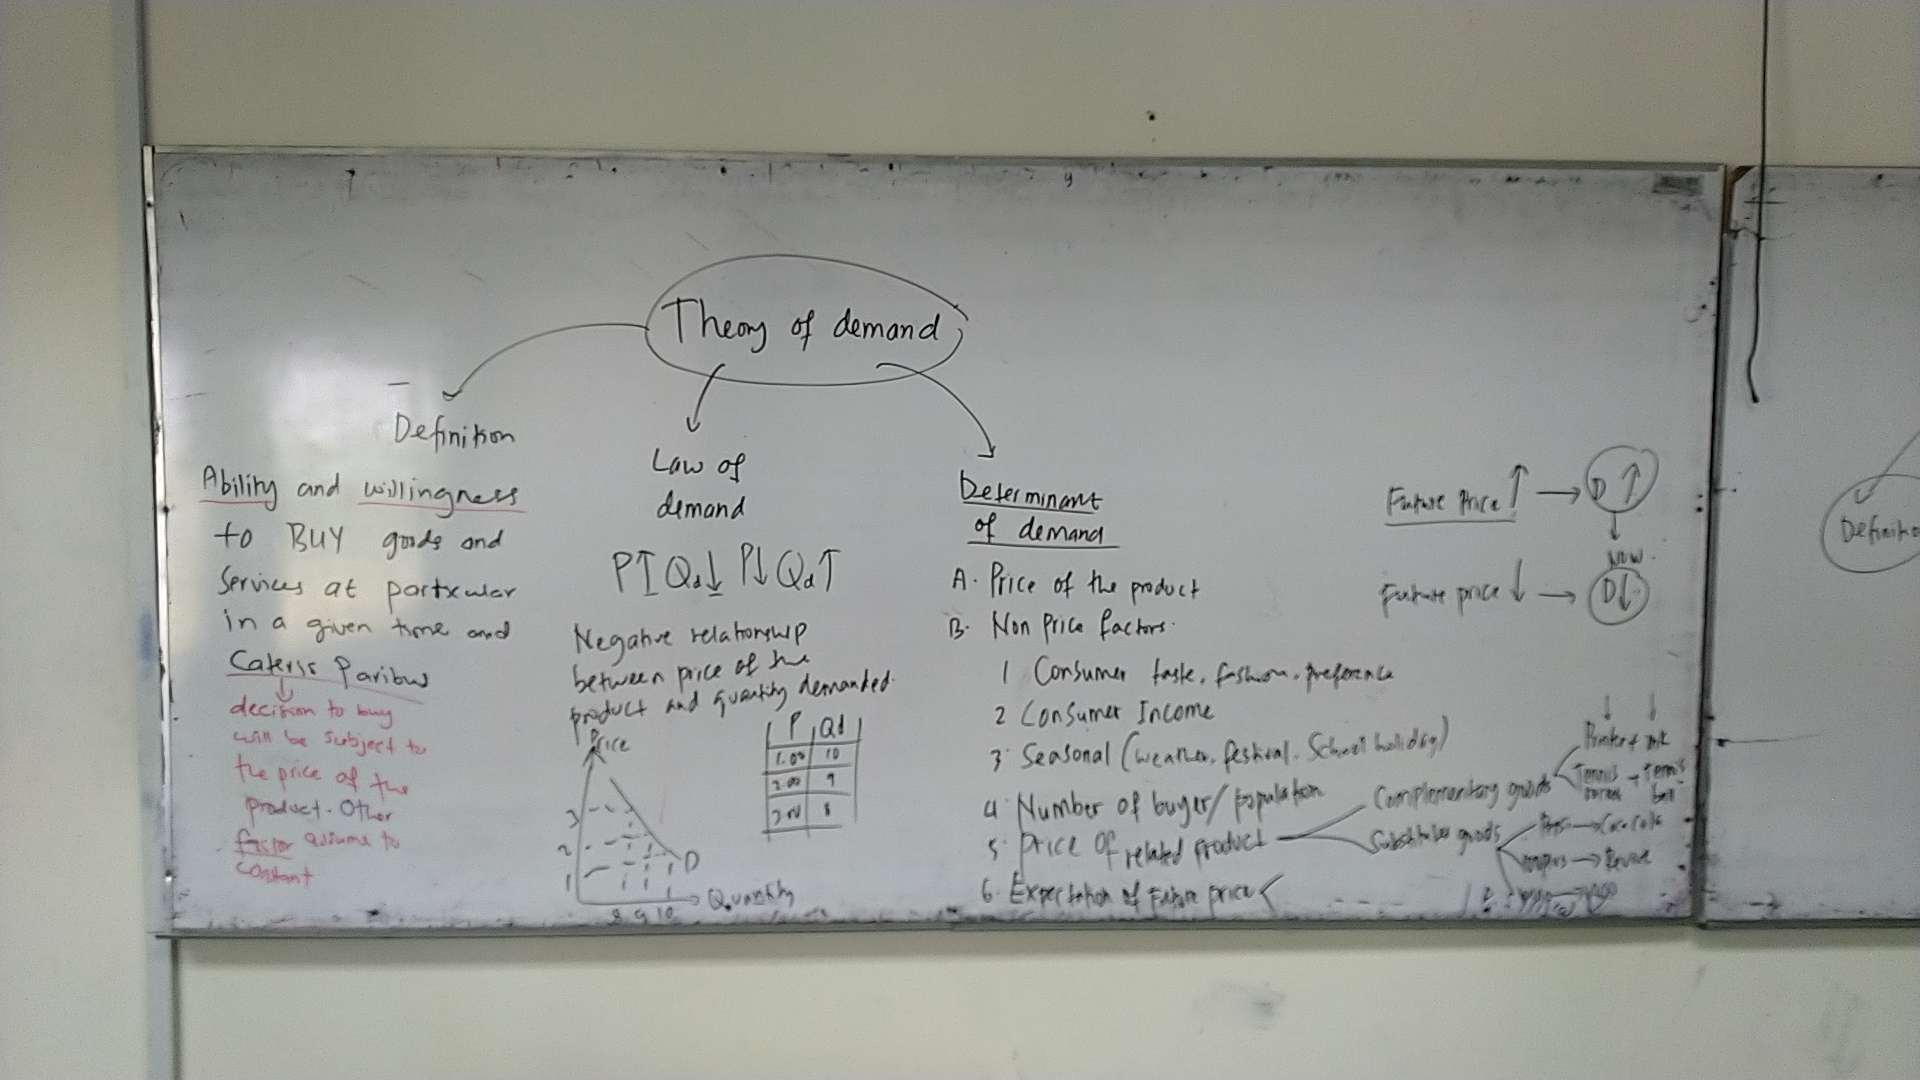 Theory of demand
Definition
Ability and willingness
to BUY goods and
services at particular
in a given time and
Ceteris Paribus
decision to buy
will be subject to
the price of the
product. Other
factor assume to
constant
Law of
demand
P↑ Qd↓ P↓ Qd↑
Negative relationship
between price of the
product and quantity demanded.
P Qd
1.00 10
2.00 9
3.00 8
Price
3
2
1
D
8 9 10
Quantity
Determinant
of demand
A. Price of the product
B. Non Price factors.
1 Consumer taste, fashion, preference
2 Consumer Income
3. Seasonal (weather, festival, School holiday)
4. Number of buyer/population
5. Price of related product
Complementary goods
Printer + ink
Tennis + Tennis
ball
Substitutes goods
→ Coca cola
6. Expectation of Future price <
Future Price ↑ → D ↑
Now.
Future price ↓ → D↓
Definition